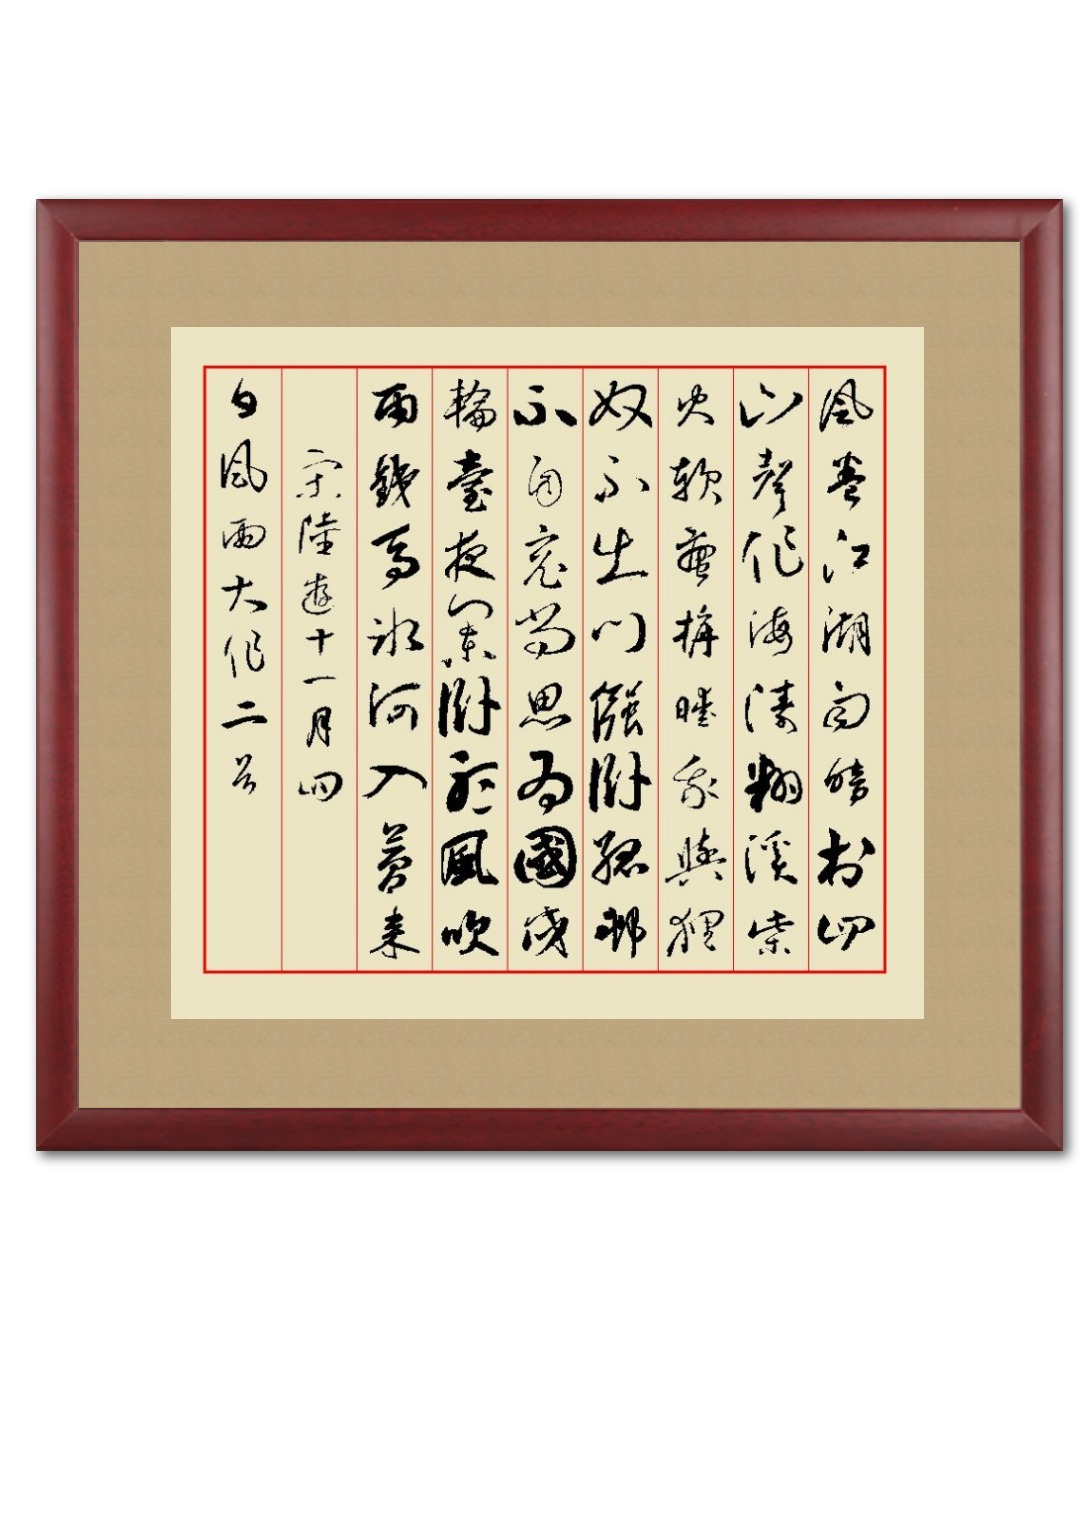 風卷江湖雨暗村四
山聲作海濤翻溪柴
火軟蠻氈暖我與狸
奴不出門僵臥孤村
不自哀尚思為國戍
輪臺夜闌臥聽風吹
雨鐵馬冰河入夢來
宋陸遊十一月四
日風雨大作二首